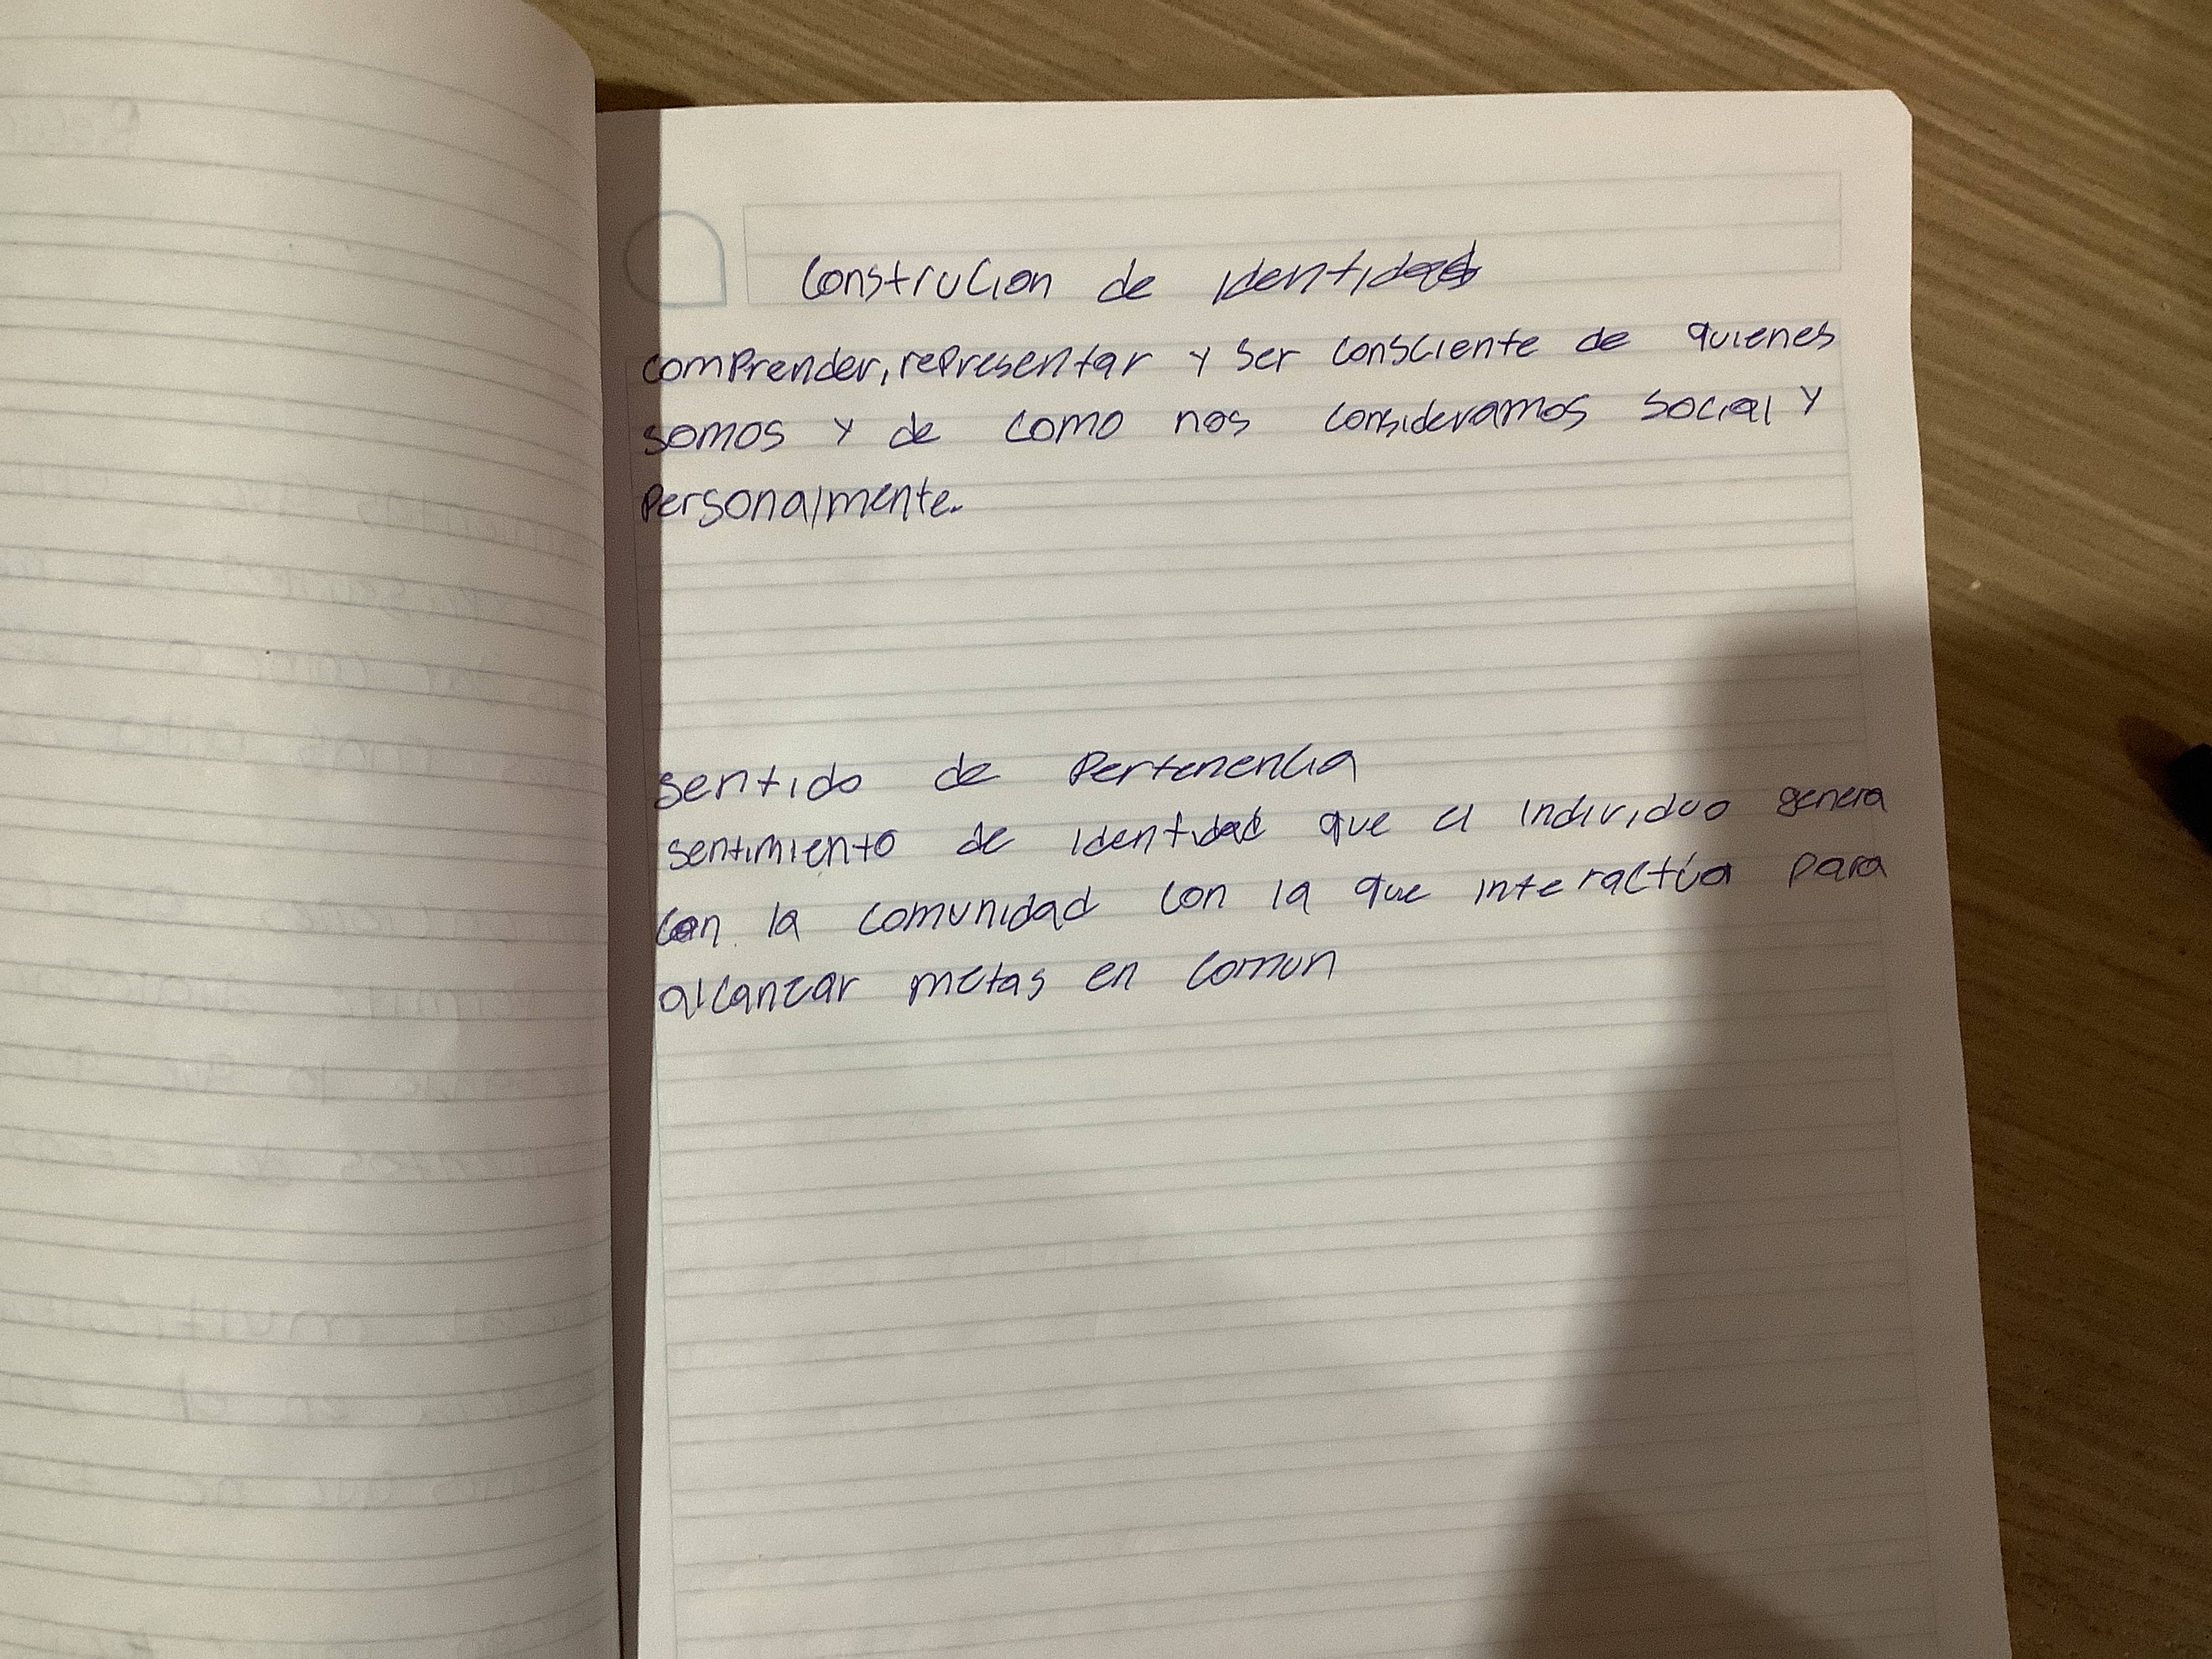 Construcion de identidad
comprender, representar y ser consciente de quienes
somos y de como nos consideramos social y
personalmente.
sentido de Pertenencia
sentimiento de identidad que el individuo genera
con la comunidad con la que interactúa para
alcanzar metas en comun